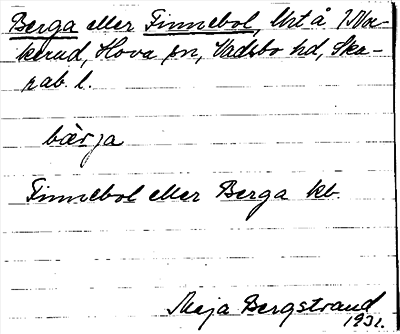 Berga eller Finnebol, Urt å Ma-
kerud, Hova sn, Vadsbo hd, Ska-
rab. l.
bærja
Finnebol eller Berga kb.
Maja Bergstrand
1931.